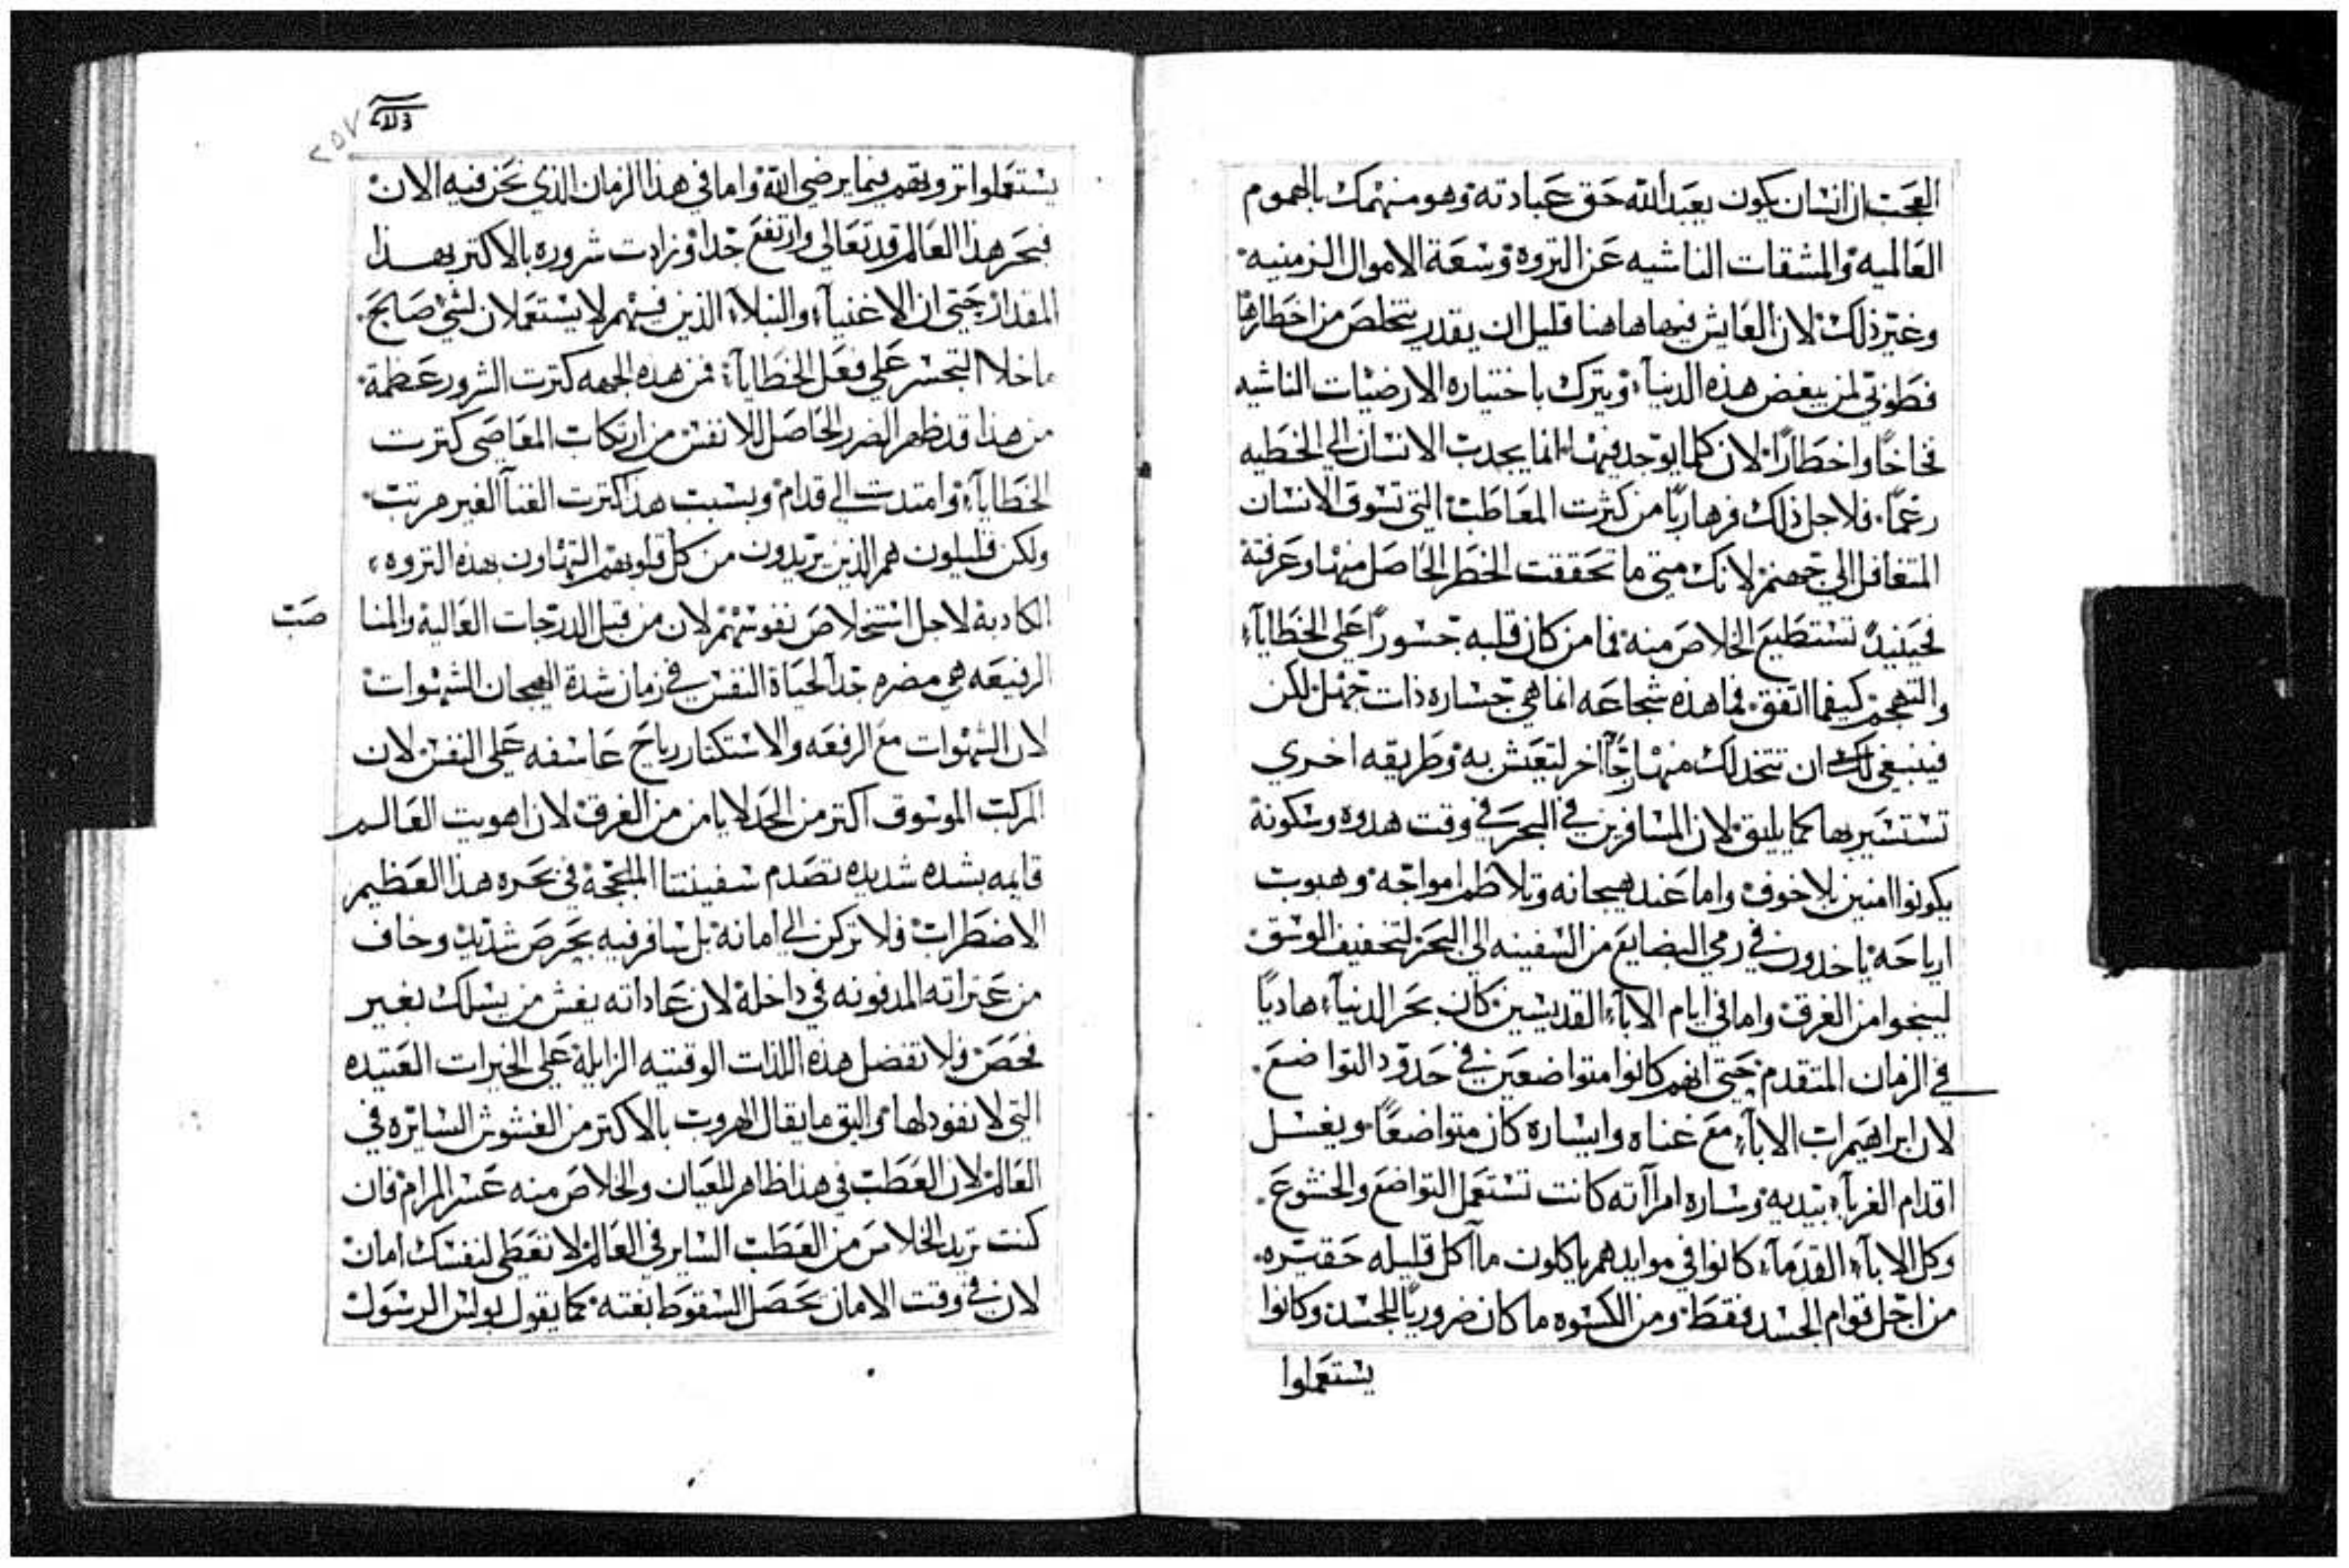 العجب ان انسان يكون يعبد الله حق عبادته وهو منهمك بالهموم
العالميه والمشقات الناشيه عن التروه وسعة الاموال الزمنيه
وغير ذلك لان العايش فيها هاهنا قليل ان يقدر يتخلص من اخطارها
فطوبى لمن يبغض هذه الدنيا ويترك باختياره الارضيات الناشيه
فخاخًا واخطارًا لان كلما يوجد فيها انما يجدب الانسان الي الخطيه
رغمًا فلاجل ذلك فر هاربًا من كثرت المعاطب التي تسوق الانسان
المتغافل الي جهنم لانك متي ما تحققت الخطر الحاصل منها وعرفته
فحينيدٍ تستطيع الخلاص منه فما من كان قلبه جسورًا علي الخطايآ
والتهجم كيفما اتفق فما هذه شجاعه انما هي جساره ذات جهل لكن
فينبغي لك ان تتخد لك منهاجًا اخر لتعيش به وطريقه اخري
تستسير بها كما يليق لان المسافرين في البحر في وقت هدوه وسكونة
يكونوا امنين بلا خوف واما عند هيجانه وتلاطم امواجه وهبوب
ارياحه ياخدون في رمي البضايع من السفينه الي البحر لتخفيف الوسق
لينجوا من الغرق واما في ايام الابآ القديسين كان بحر الدنيآ هاديًا
في الزمان المتقدم حتي انهم كانوا متواضعين في حدود التواضع
لان ابراهيم اب الابآ مع غناه وايساره كان متواضعًا ويغسل
اقدام الغربآ بيديه وساره امرآته كانت تستعمل التواضع والخشوع
وكل الابآ القدمآ كانوا في موايدهم ياكلون مآاكل قليله حقيره
من اجل قوام الجسد فقط ومن الكسوه ما كان ضروريًا للجسد وكانوا
يستعملوا
٢٥٧
يستعملوا تروتهم فيما يرضي الله واما في هذا الزمان الذي نحن فيه الان
فبحر هذا العالم قد تعالي وارتفع جدا وزادت شروره بالاكتر بهذا
المقدار حتي ان الاغنيآ والنبلآ الذين فيهم لا يستعملان لشي صالح
ماخلا التجسر علي فعل الخطايآ فمن هذه الجهه كترت الشرور عظمة
من هذا قد ظهر الضرر الحاصل للانفس من ارتكاب المعاصي كترت
الخطايآ وامتدت الي قدام وبسبب هذا كترت الفنآ الغير مرتب
ولكن قليلون هم الذين يريدون من كل قلوبهم التهاون بهذه التروه
الكادبة لاجل استخلاص نفوسهم لان من قبل الدرجات العالية والمنا صب
الرفيعه هي مضره جدا لحياة النفس في زمان شدة الهيجان الشهوات
لان الشهوات مع الرفعه والاستكنار رياح عاسفه علي النفس لان
المركب الموسوق اكتر من الحد لا يامن من الغرق لان اهويت العالم
قايمه بشده شديده تصدم سفينتنا الملججة في بحره هذا العظيم
الاضطراب فلا تركن الي امانة بل سافر فيه بحرص شديد وخاف
من عتراته المدفونه في داخلة لان عاداته يغش من يسلك بغير
فحص فلا تفضل هذه اللذات الوقتيه الزايلة علي الخيرات العتيده
التي لا نفود لها واليق ما يقال الهروب بالاكتر من الغشوش السايره في
العالم لان العطب في هذا ظاهر للعيان والخلاص منه عسر المرام فان
كنت تريد الخلاص من العطب الساير في العالم لا تعطي لنفسك امان
لان في وقت الامان يحصل السقوط بغته كما يقول بولس الرسول